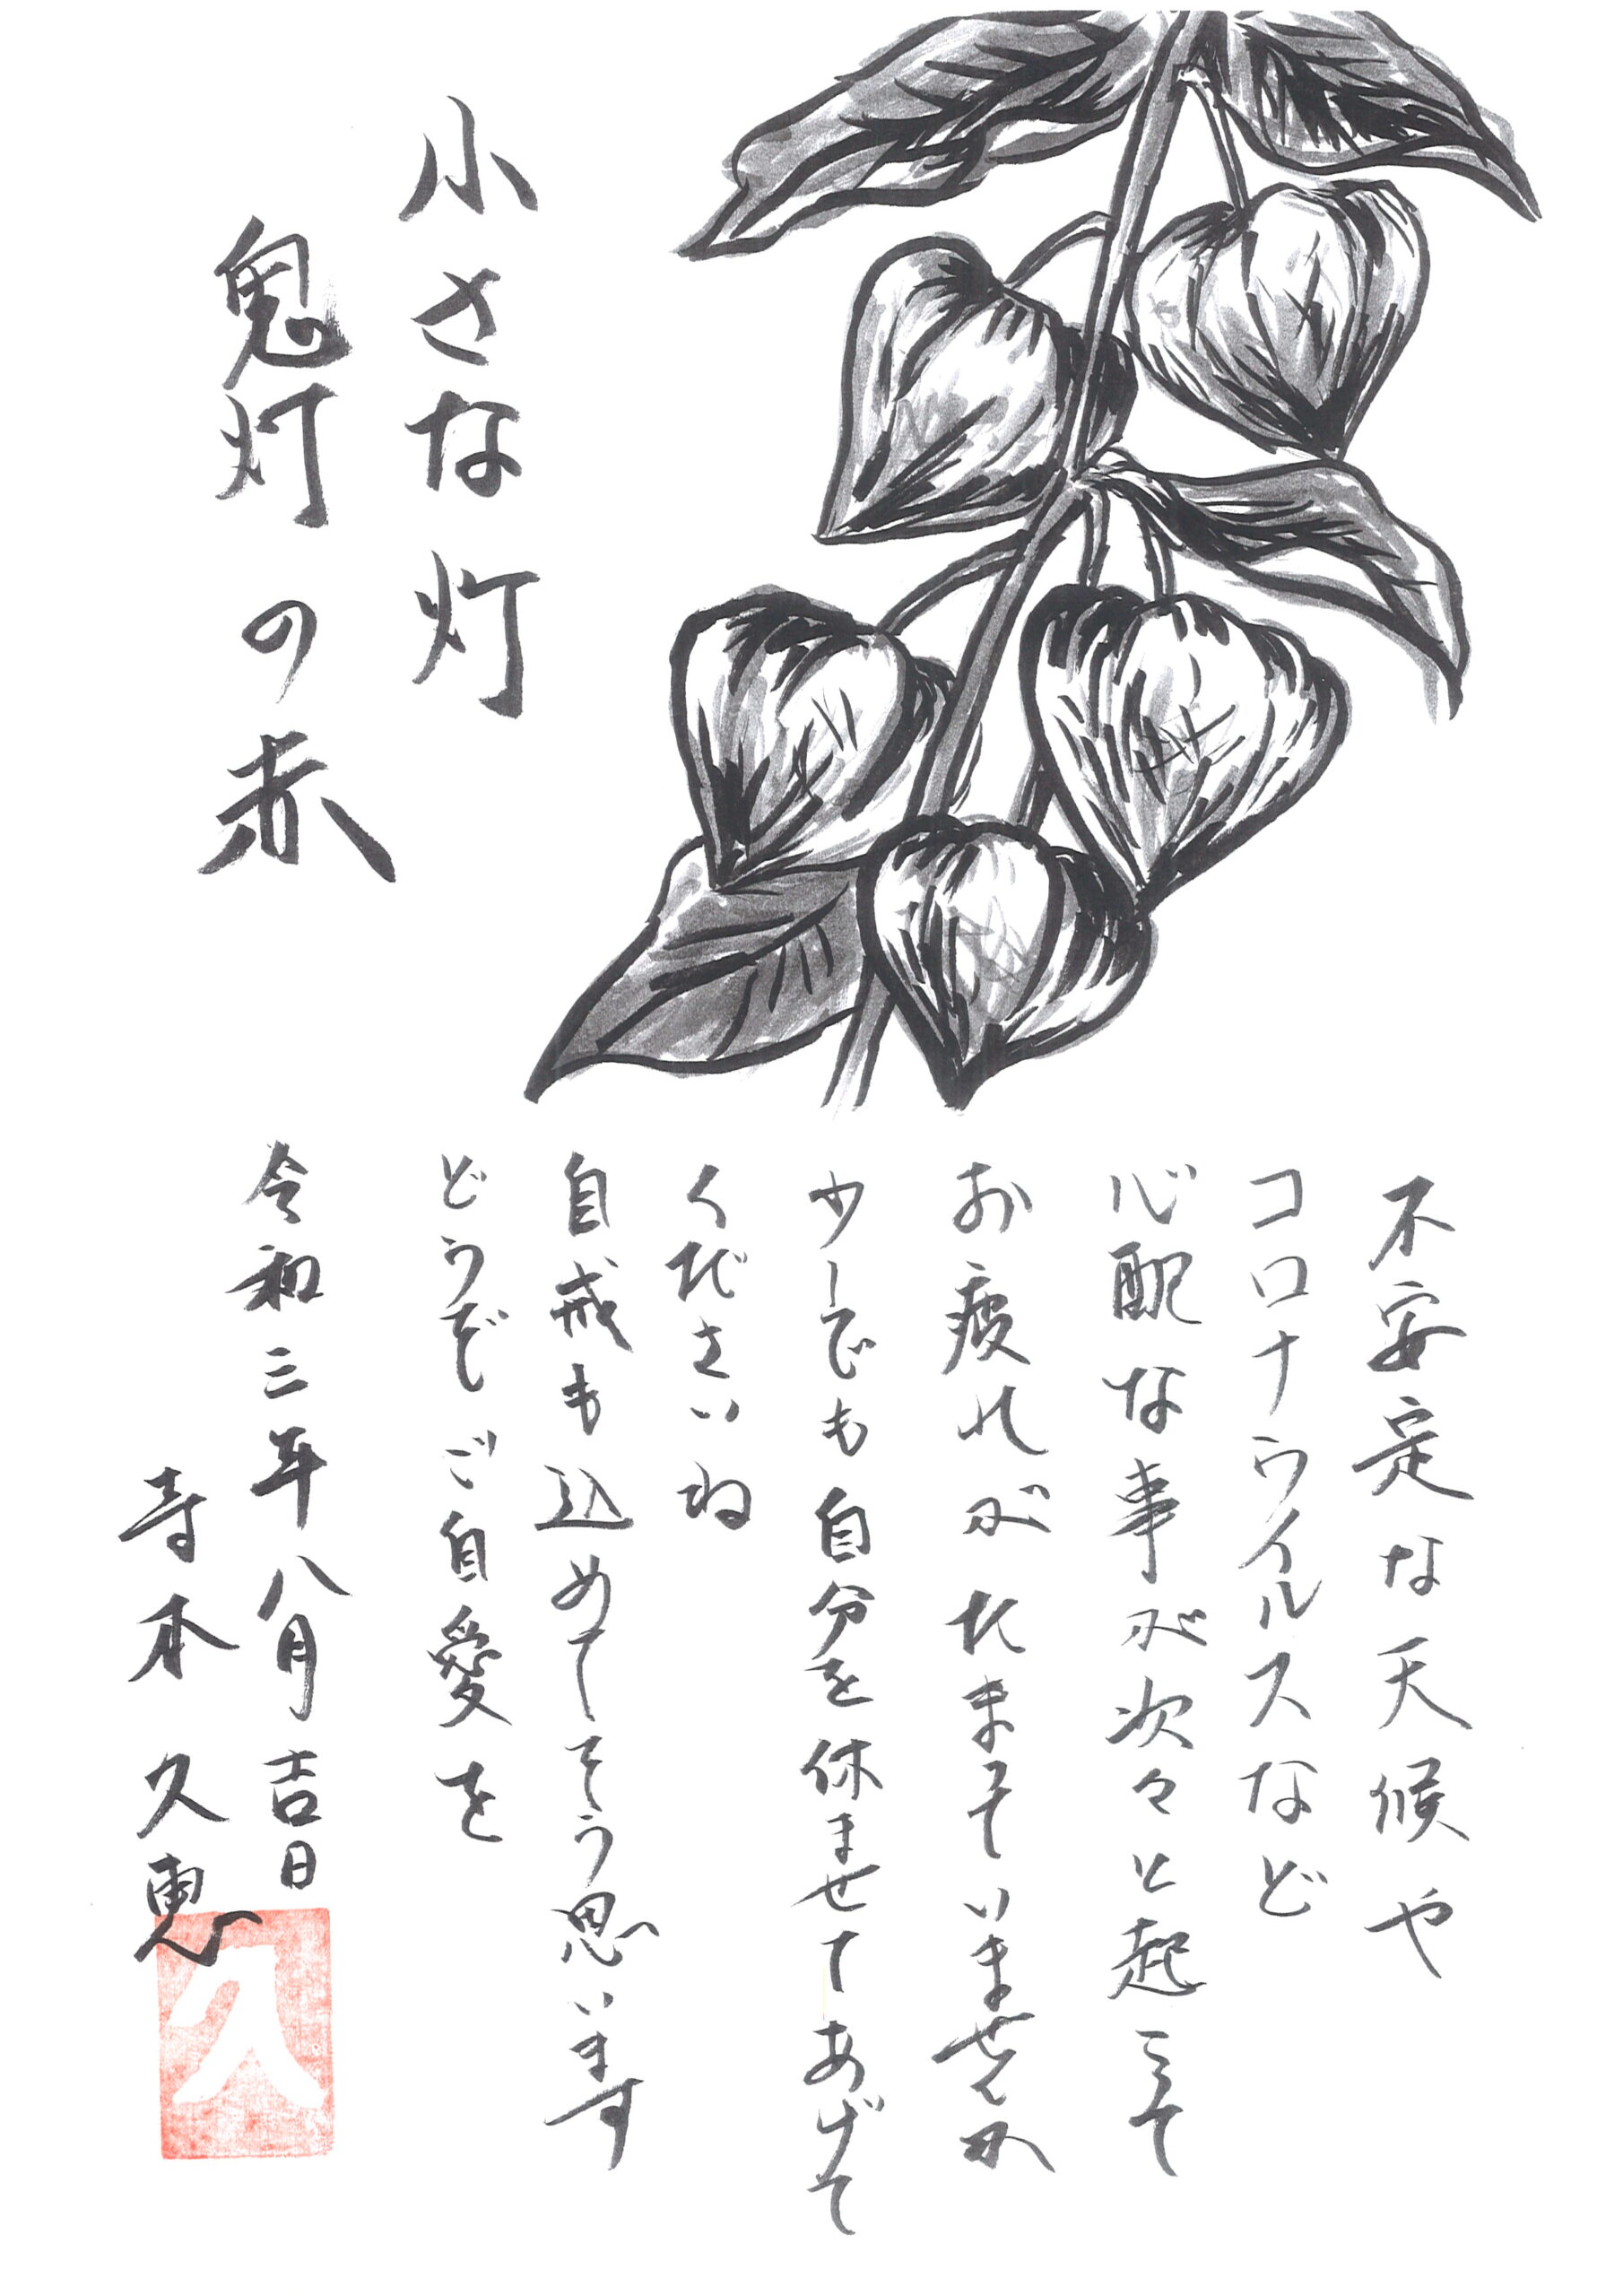 小さな灯
鬼灯の赤
不安定な天候や
コロナウイルスなど
心配な事が次々と起こって
お疲れがたまっていませんか
少しでも自分を休ませてあげて
くださいね
自戒も込めてそう思います
どうぞご自愛を
令和三年八月吉日
寺本久恵
久